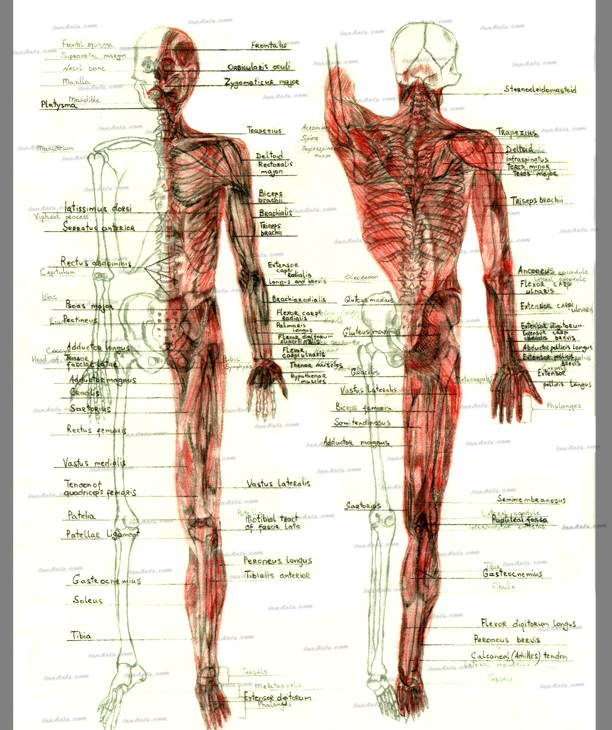 Frontal eminence
Supraorbital margin
Nasal bone
Maxilla
Mandible
Platysma
Manubrium
latissimus dorsi
Xiphoid process
Serratus anterior
Rectus abdiminis
Capitulum
Iliac
Psoas major
Pectineus
Adductor longus
Tensor
fasciae latae
Adductor magnus
Gracilis
Sartorius
Rectus femoris
Vastus medialis
Tendon of
quadriceps femoris
Patella
Patellae ligament
Gastrocnemius
Soleus
Tibia
Frontalis
Orbicularis oculi
Zygomaticus major
Trapezius
Deltoid
Pectoralis
major
Biceps
brachii
Brachialis
Triceps
brachii
Extensor
carpi
radialis
longus and brevis
Brachioradialis
Flexor carpi
radialis
Palmaris
longus
Flexor digitorum
Flexor
carpi ulnaris
Thenar muscles
Hypothenar
muscles
Pubic
Symphysis
Vastus lateralis
Iliotibial tract
of fascia lata
Peroneus longus
Tibialis anterior
Tarsals
Metatarsals
Extensor digitorum
Phalanges
Acromion
Spine
Supraspinous
fossa
Olecranon
Gluteus medius
Gluteus maximus
Gracilis
Vastus Lateralis
Biceps femoris
Semitendinosus
Adductor magnus
Sartorius
Sternocleidomastoid
Trapezius
Deltoid
Infraspinatus
Teres minor
Teres major
Triseps brachii
Anconeus
Flexor carpi
ulnaris
Extensor carpi
ulnaris
Extensor digitorum
Extensor carpi
radialis brevis
Abductor pollicis longus
Extensor pollicis
brevis
Extensor
pollicis longus
Metacarpals
Phalanges
Semimembranosus
Popliteal fossa
Tibia
Gastrocnemius
Fibula
Flexor digitorum longus
Peroneus brevis
Calcaneal (Achilles) tendon
Tarsals
InnArts.com